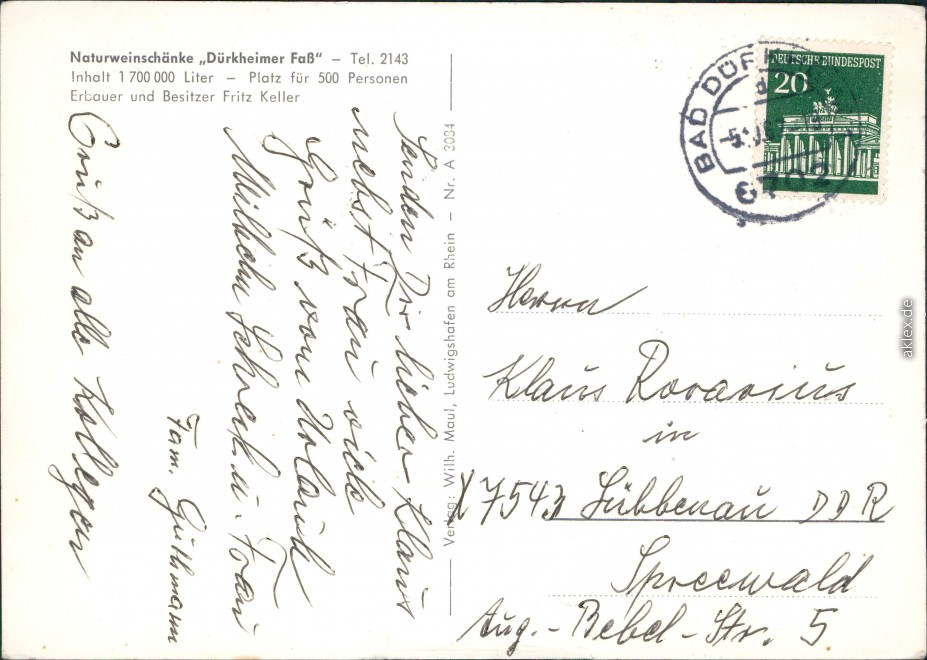 Naturweinschänke „Dürkheimer Faß" – Tel. 2143
Inhalt 1 700 000 Liter – Platz für 500 Personen
Erbauer und Besitzer Fritz Keller
Senden Dir lieber Klaus
nebst Frau viele
Grüß vom Urlaub
Wilhelm Schrock u. Frau
Fam. Guthmann
Gruß an alle Kollegen
Verlag: Wilh. Maul, Ludwigshafen am Rhein – Nr. A 3034
BAD DÜRK
d
6702
DEUTSCHE BUNDESPOST
20
Herrn
Klaus Rovarius
in
X7543 Lübbenau DDR
Spreewald
Aug.-Bebel-Str. 5
aklex.de